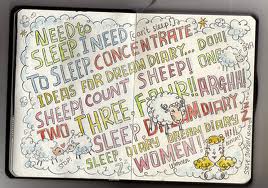 NEED TO
SLEEP I NEED (can't sleep!)
TO SLEEP CONCENTRATE
IDEAS FOR DREAM DIARY... DOH!
SHEEP! COUNT SHEEP! ONE
TWO, THREE, FOUR!! ARGH!!
SLEEP DREAM DIARY
SLEEP, DIARY DREAM DIARY
WOMEN!